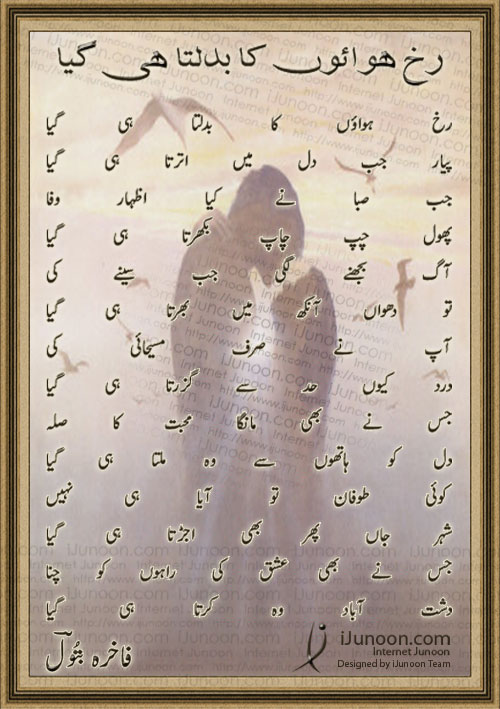 رخ ھوائوں کا بدلتا ھی گیا
رخ ہواؤں کا بدلتا ہی گیا
پیار جب دل میں اترتا ہی گیا
جب صبا نے کیا اظہار وفا
پھول چپ چاپ بکھرتا ہی گیا
آگ بجھنے لگی جب سینے کی
تو دھواں آنکھ میں بھرتا ہی گیا
آپ نے صرف مسیحائی کی
درد کیوں حد سے گزرتا ہی گیا
جس نے بھی مانگا محبت کا صلہ
دل کو ہاتھوں سے وہ ملتا ہی گیا
کوئی طوفان تو آیا ہی نہیں
شہر جاں پھر بھی اجڑتا ہی گیا
جس نے بھی عشق کی راہوں کو چنا
دشت آباد وہ کرتا ہی گیا
فاخرہ بتول
iJunoon.com
Internet Junoon
Designed by iJunoon Team